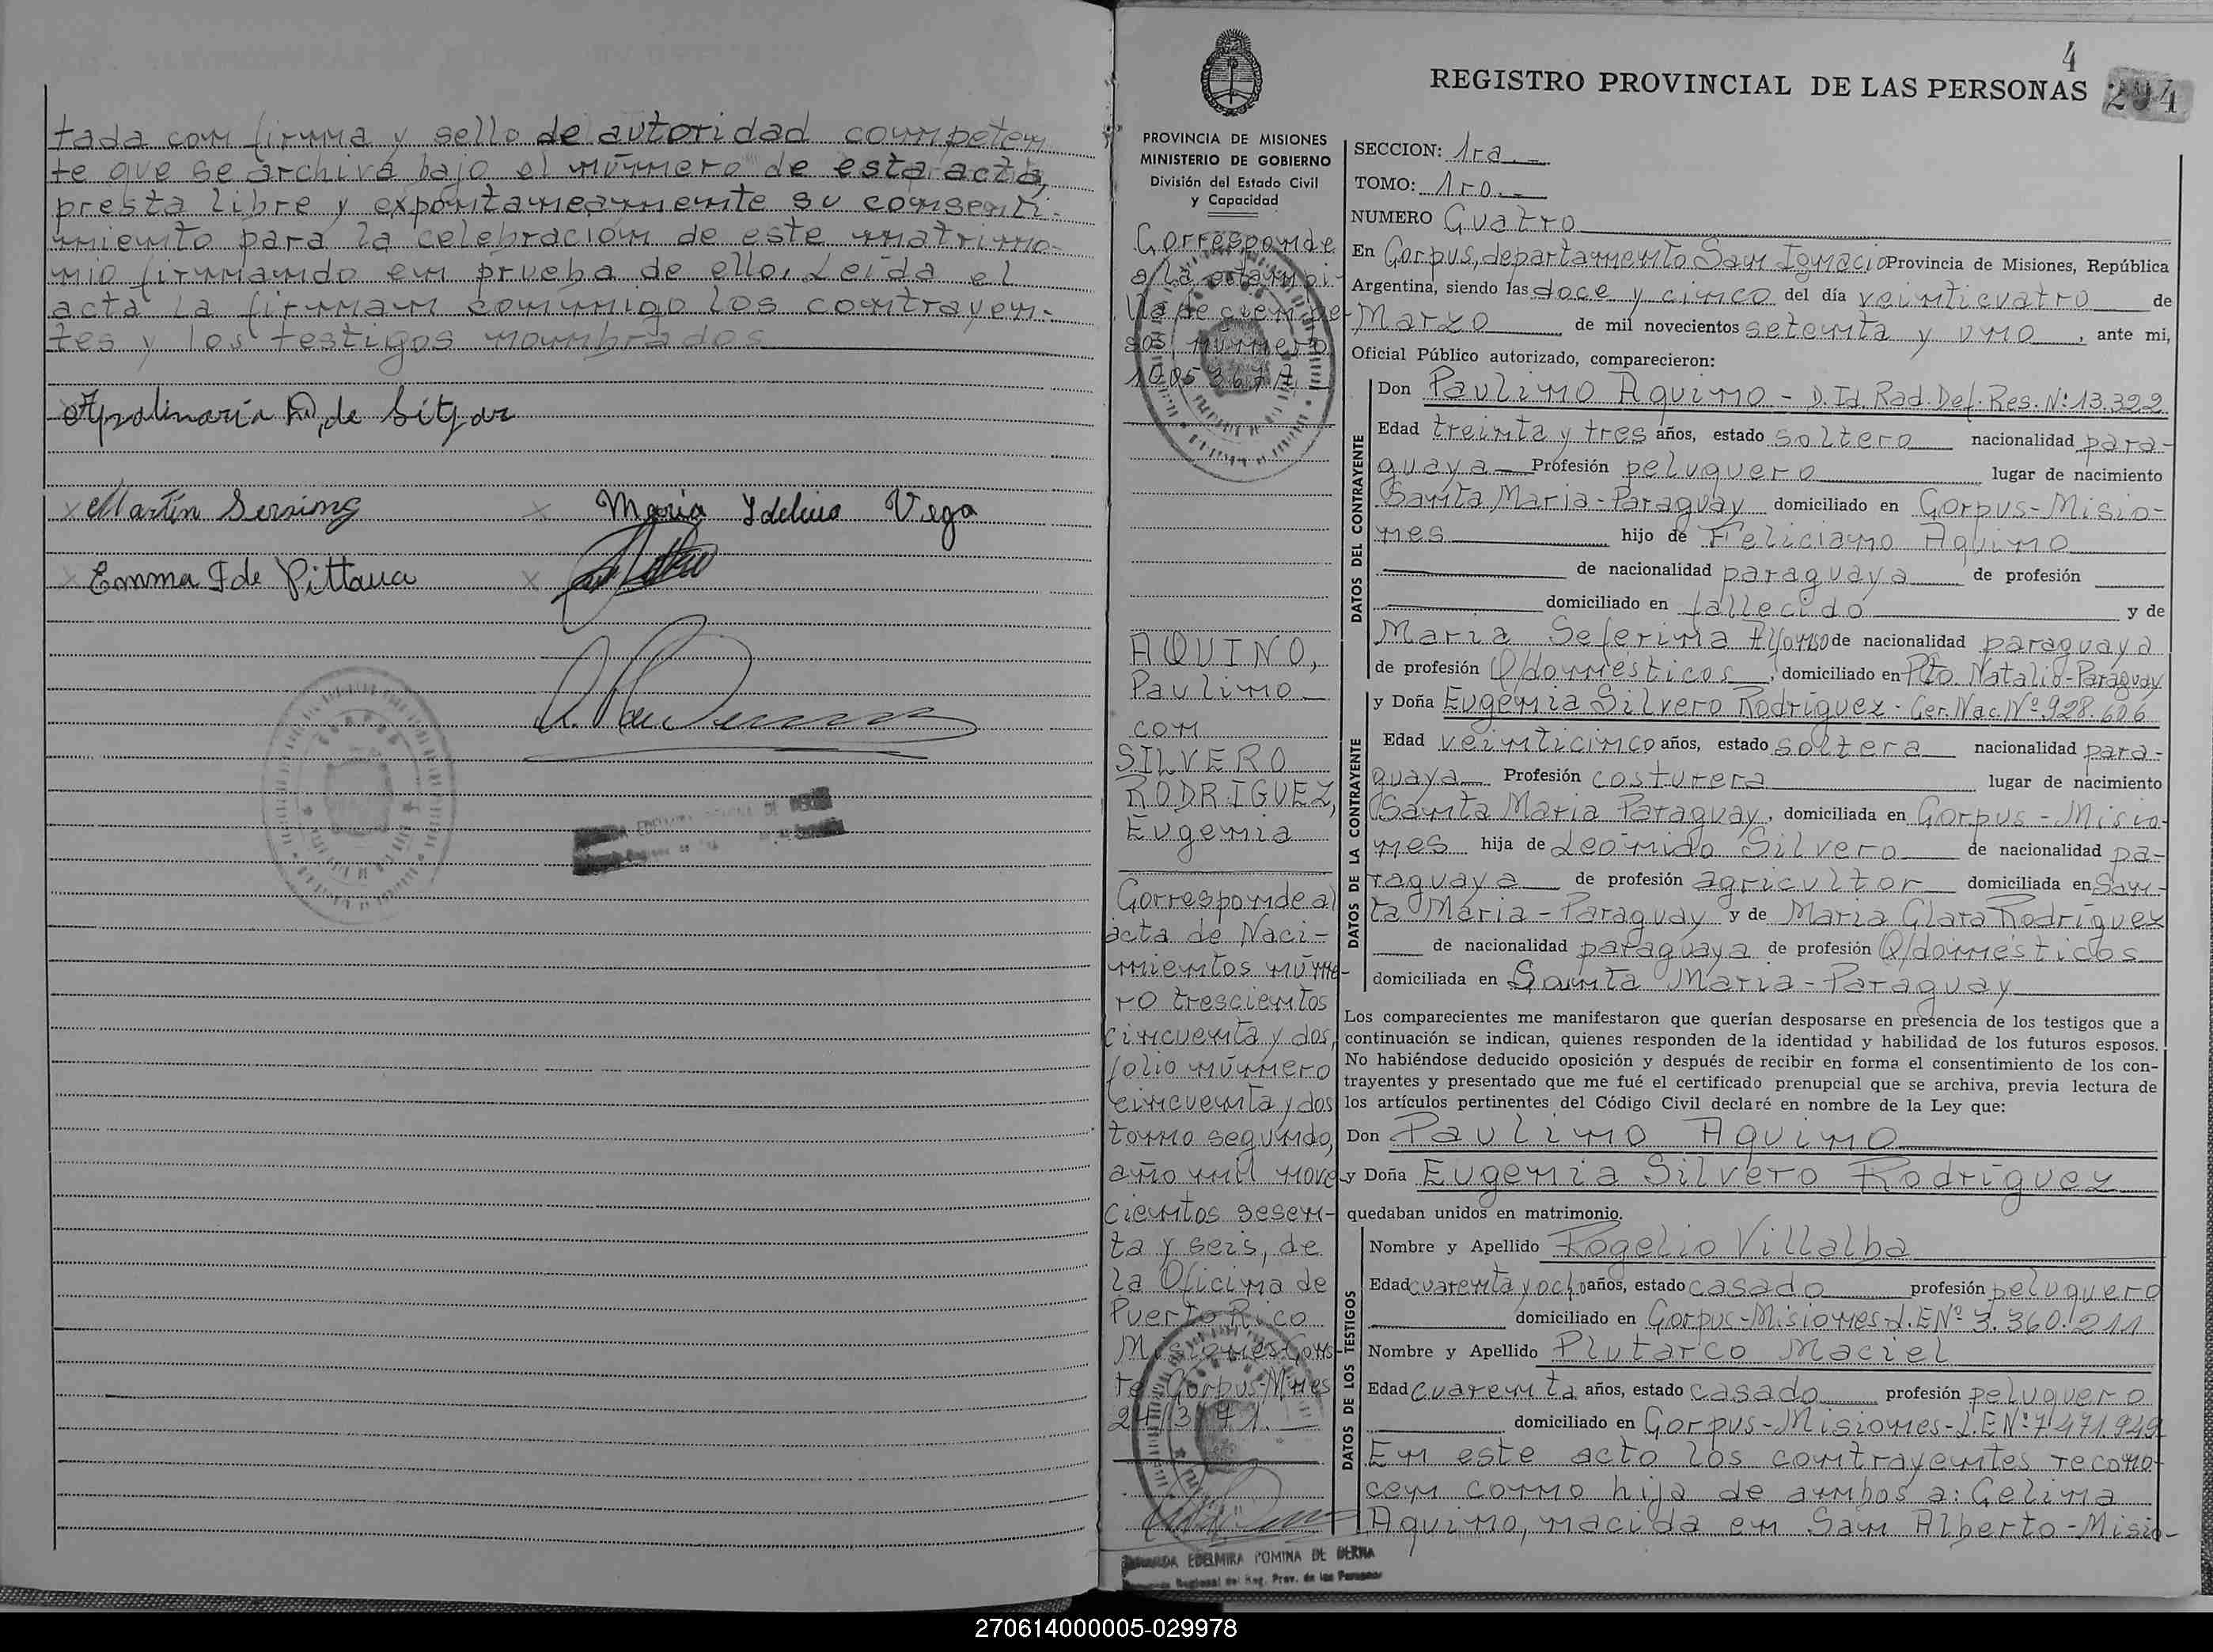 tada con firma y sello de autoridad competen
te que se archiva bajo el número de esta acta,
presta libre y expontaneamente su consenti-
miento para la celebración de este matrimo-
nio firmando en prueba de ello. Leída el
acta la firman conmigo los contrayen-
tes y los testigos nombrados
Apolinaria D. de Sitjar
x Martín Sersing x Maria Idelina Vega
x Emma F de Pittana x
4
REGISTRO PROVINCIAL DE LAS PERSONAS 204
PROVINCIA DE MISIONES
MINISTERIO DE GOBIERNO
División del Estado Civil
y Capacidad
Corresponde
a la estampi-
lla de cien pe-
sos, número
AQUINO,
Paulino
con
SILVERO
RODRIGUEZ,
Eugenia
Corresponde al
acta de Naci-
mientos núme-
ro trescientos
cincuenta y dos,
folio número
cincuenta y dos
tomo segundo,
año mil nove-
cientos sesen-
ta y seis, de
la Oficina de
Puerto Rico
Misiones Cons-
te Corpus-Mnes
24/3/71.
EDELMIRA POMINA DE BERNA
Regional del Reg. Prov. de las Personas
SECCION: 1ra.-
TOMO: 1ro.-
NUMERO Cuatro
En Corpus, departamento San Ignacio Provincia de Misiones, República
Argentina, siendo las doce y cinco del día veinticuatro de
Marzo de mil novecientos setenta y uno, ante mi,
Oficial Público autorizado, comparecieron:
DATOS DEL CONTRAYENTE
Don Paulino Aquino - D.Id.Rad.Def.Res.Nº13.322
Edad treinta y tres años, estado soltero nacionalidad para-
guaya Profesión peluquero lugar de nacimiento
Santa Maria-Paraguay domiciliado en Corpus-Misio-
nes hijo de Feliciano Aquino
de nacionalidad paraguaya de profesión
domiciliado en fallecido y de
Maria Seferina Alfonso de nacionalidad paraguaya
de profesión Q/domésticos, domiciliado en Pto. Natalio-Paraguay
DATOS DE LA CONTRAYENTE
y Doña Eugenia Silvero Rodríguez-Cer.Nac.Nº928.606
Edad veinticinco años, estado soltera nacionalidad para-
guaya Profesión costurera lugar de nacimiento
Santa Maria Paraguay, domiciliada en Corpus-Misio-
nes hija de Leónido Silvero de nacionalidad pa-
raguaya de profesión agricultor domiciliada en San-
ta Maria-Paraguay y de Maria Clara Rodríguez
de nacionalidad paraguaya de profesión Q/domésticos
domiciliada en Santa Maria-Paraguay
Los comparecientes me manifestaron que querían desposarse en presencia de los testigos que a
continuación se indican, quienes responden de la identidad y habilidad de los futuros esposos.
No habiéndose deducido oposición y después de recibir en forma el consentimiento de los con-
trayentes y presentado que me fué el certificado prenupcial que se archiva, previa lectura de
los artículos pertinentes del Código Civil declaré en nombre de la Ley que:
Don Paulino Aquino
y Doña Eugenia Silvero Rodríguez
quedaban unidos en matrimonio.
DATOS DE LOS TESTIGOS
Nombre y Apellido Rogelio Villalba
Edad cuarenta y ocho años, estado casado profesión peluquero
domiciliado en Corpus-Misiones-L.ENº3.360.211
Nombre y Apellido Plutarco Maciel
Edad cuarenta años, estado casado profesión peluquero
domiciliado en Corpus-Misiones-L.ENº7.471.949
En este acto los contrayentes recono-
cen como hija de ambos a: Celina
Aquino, nacida en San Alberto-Misio-
270614000005-029978